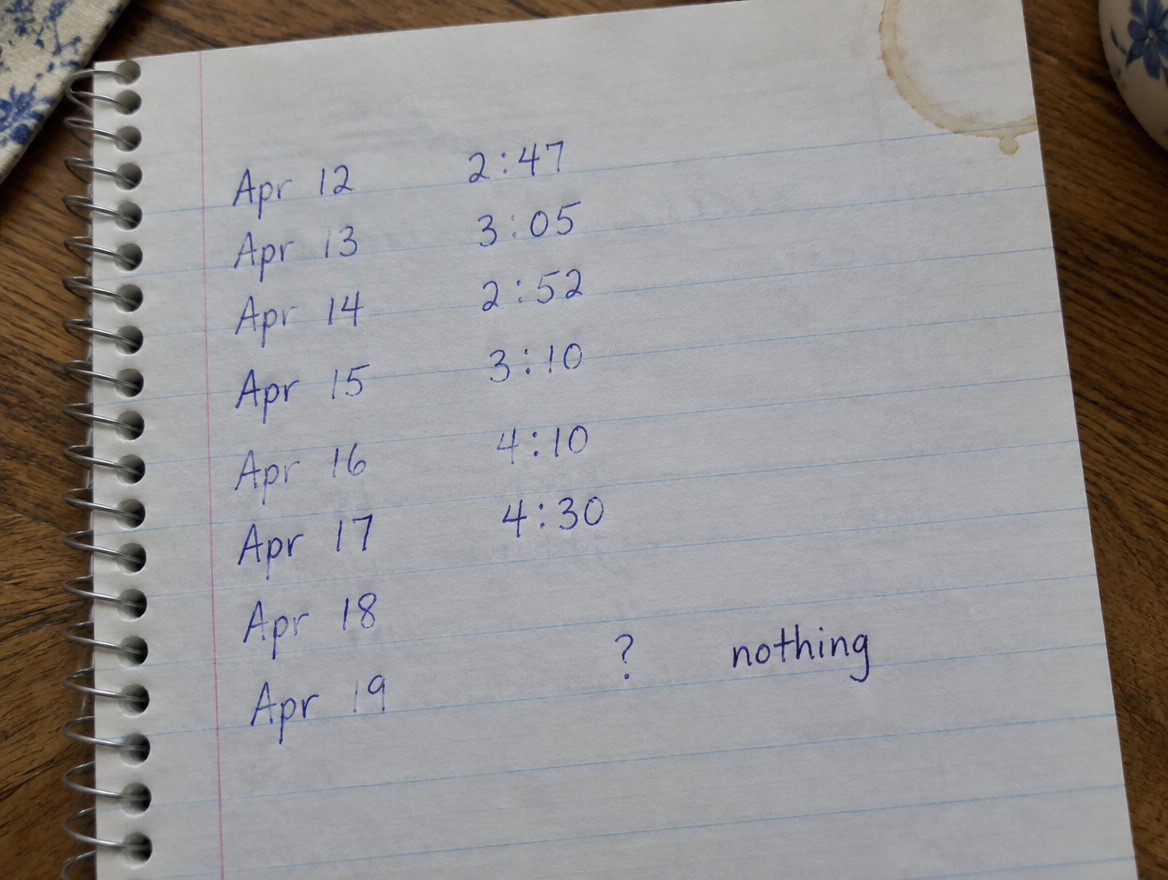 Apr 12 2:47
Apr 13 3:05
Apr 14 2:52
Apr 15 3:10
Apr 16 4:10
Apr 17 4:30
Apr 18
? nothing
Apr 19